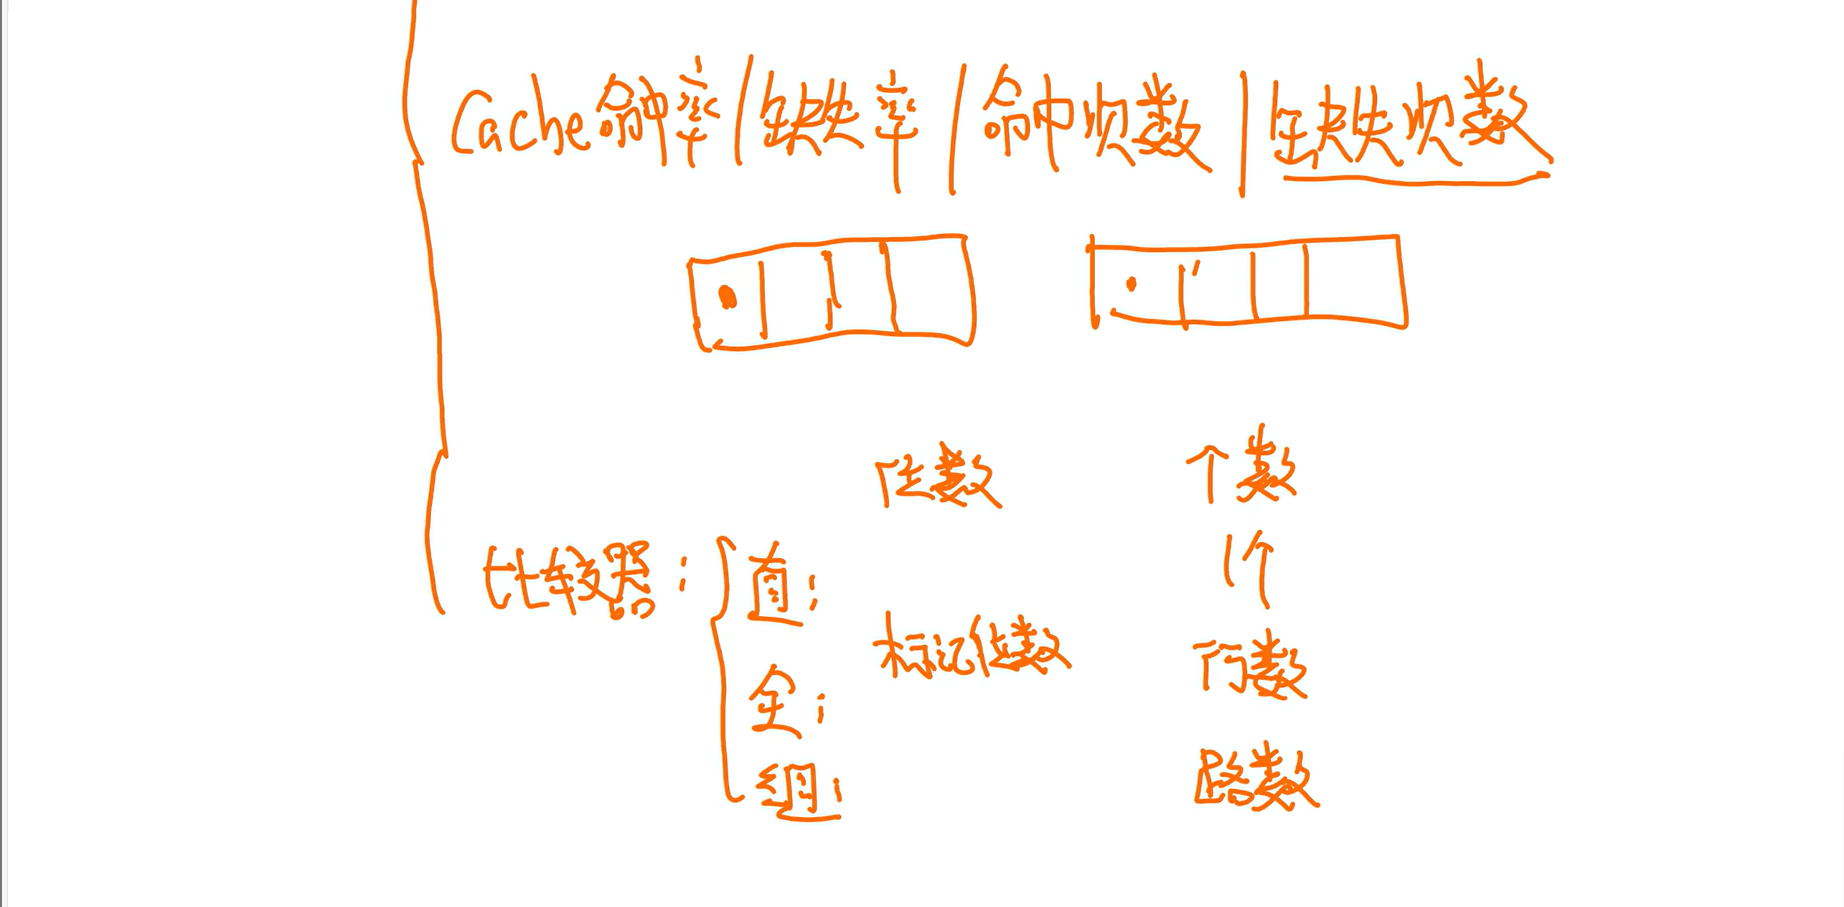 Cache命中率/缺失率/命中次数/缺失次数
位数 个数
比较器: 直: 1个
标记位数 行数
全:
组: 路数